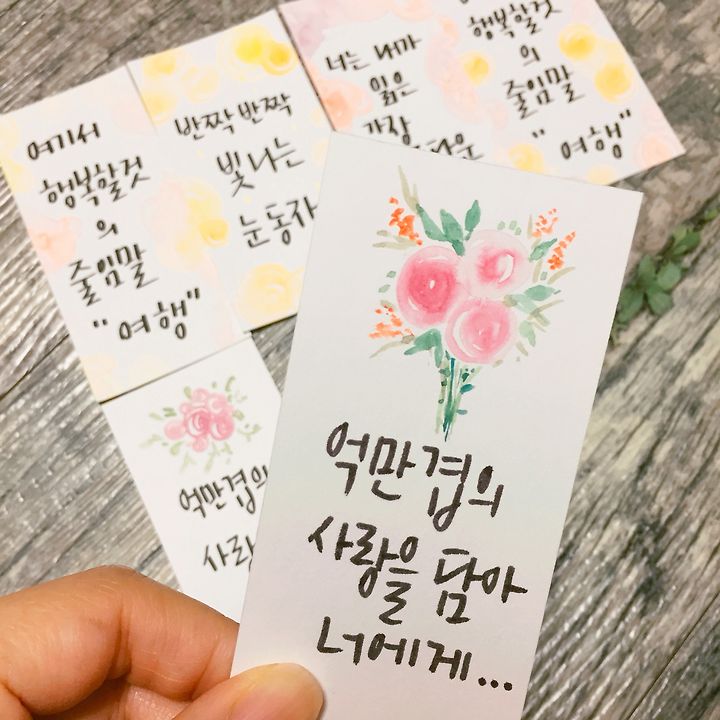 여기서
행복할것
의
줄임말
"여행"
반짝 반짝
빛나는
눈동자
너는 내가
읽은
가장
행복할것
의
줄임말
"여행"
억만겁의
사랑
억만겁의
사랑을 담아
너에게...